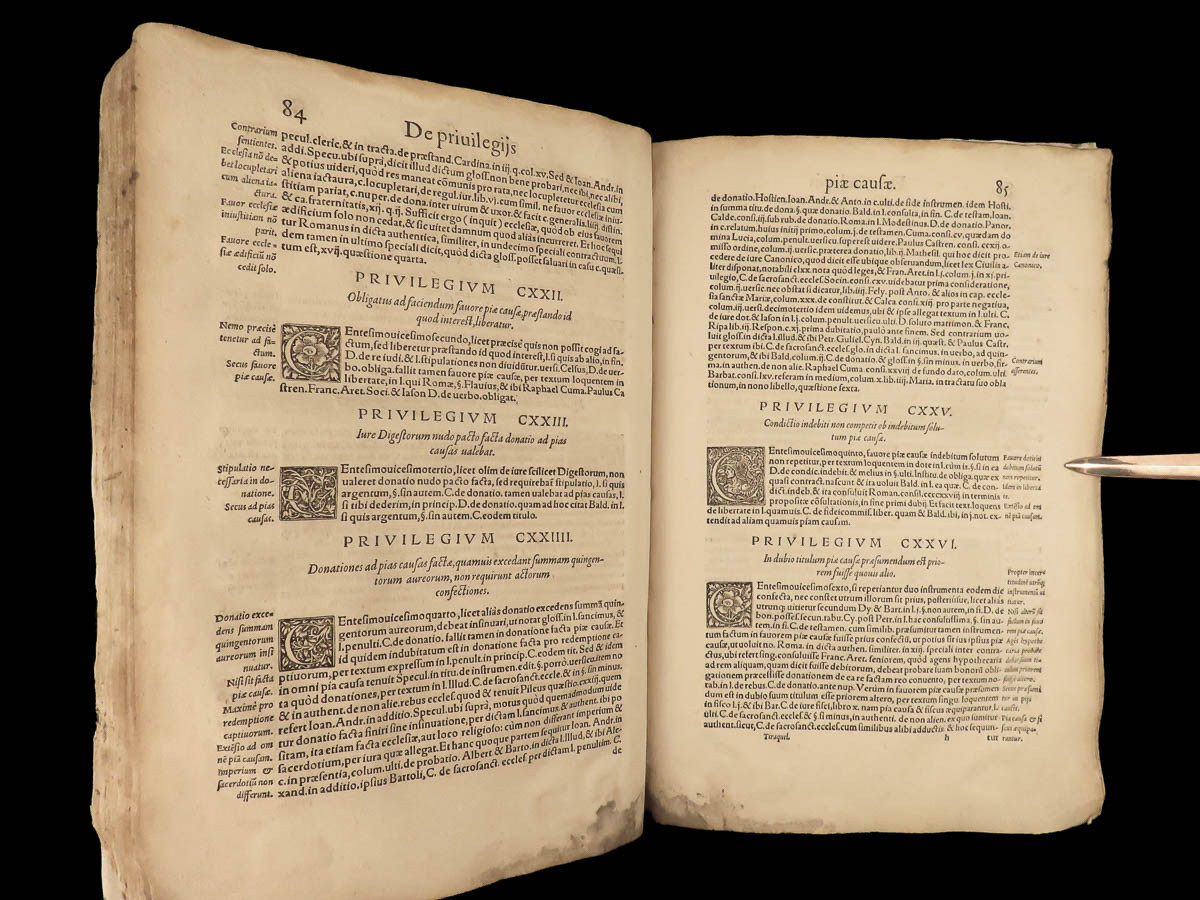 84
De priuilegijs
Contrarium
sentientes.
Ecclesia nō de=
bet locupletari
cum aliena ia=
ctura.
Fauor ecclesiæ
iniustitiam nō
parit.
Fauore eccle=
siæ ædificiū nō
cedit solo.
pecul.cleric,& in tracta.de præstand.Cardina.in iij.q.col.xv.Sed & Ioan.Andr.in
addi.Specu.ubi suprà,dicit illud dictum gloss.non bene probari,nec ibi,nec alibi,
& potius uideri,quòd res maneat cōmunis pro rata,nec locupletetur ecclesia cum
aliena iactura,c.locupletari,de regul.iur.lib.vj.cum simil.ne fauor ecclesiæ iniu-
stitiam pariat,c.nuper.de dona.inter uirum & uxor.& facit c.generalis.lxiij.distin.
& ca.fraternitatis,xij.q.ij.Sufficit ergo (inquit) ecclesiæ,quòd ob eius fauorem
ædificium solo non cedat,& sic uitet damnum quod aliàs incurreret.Et hoc sequi
tur Romanus in dicta authentica,similiter,in undecimo speciali contractuum.I-
dem tamen in ultimo speciali dicit,quòd dicta gloss.posset saluari in casu c.quæsi-
tum est,xvij.quæstione quarta.
PRIVILEGIVM CXXII.
Obligatus ad faciendum fauore piæ causæ,præstando id
quod interest,liberatur.
Nemo præcisè
tenetur ad fa=
ctum.
Secus fauore
piæ causæ.
CEntesimouicesimosecundo,licet præcisè quis non possit cogi ad fa-
ctum,sed liberetur præstando id quod interest,l.si quis ab alio,in fin.
D.de re iudi.& l.stipulationes non diuidūtur.uersi.Celsus,D.de uer-
bo.obliga.fallit tamen fauore piæ causæ,per textum loquentem in
libertate,in l.qui Romæ,§.Flauius,& ibi Raphael Cuma.Paulus Ca
stren.Franc.Aret.Soci.& Iason D.de uerbo.obligat.
PRIVILEGIVM CXXIII.
Iure Digestorum nudo pacto facta donatio ad pias
causas ualebat.
Stipulatio ne=
cessaria in do=
natione.
Secus ad pias
causas.
CEntesimouicesimotertio,licet olim de iure scilicet Digestorum,non
ualeret donatio nudo pacto facta,sed requirebat stipulatio,l.si quis
argentum,§.sin autem.C.de donatio.tamen ualebat ad pias causas,l.
si tibi dederim,in princip.D.de donatio.quam ad hoc citat Bald.in l.
si quis argentum,§.sin autem.C.eodem titulo.
PRIVILEGIVM CXXIIII.
Donationes ad pias causas factæ,quamuis excedant summam quingen-
torum aureorum,non requirunt actorum
confectiones.
Donatio exce=
dens summam
quingentorum
aureorum insi
nuatur.
Nisi sit facta
piæ causæ.
Maximè pro
redemptione
captiuorum.
Extēsio ad om
nē piā causam.
Imperium &
sacerdotiū non
differunt.
CEntesimouicesimoquarto,licet aliàs donatio excedens summā quin-
gentorum aureorum,debeat insinuari,ut notat gloss.in l.sancimus,&
l.penulti.C.de donatio.fallit tamen in donatione facta piæ causæ.Et
id quidem indubitatum est in donatione facta pro redemptione ca-
ptiuorum,per textum expressum in l.penult.in princip.C.eodem tit.Sed & idem
in omni pia causa tenuit Specul.in titu.de instrumen.edit.§.porrò.uersi.item no
ta quòd donationes,per textum in l.Illud.C.de sacrosanct.eccle.& in §.sin minus.
& in authent.de non alie.rebus eccles.quod & tenuit Pileus quæstio.cxiij.quem
refert Ioan.Andr.in additio.Specul.ubi suprà,motus quòd quemadmodum uide
tur donatio facta fini sine insinuatione,per dictam l.sancimus,& authent.ibi po
sitam,ita etiam facta ecclesiæ,aut loco religioso:cùm non differant imperium &
sacerdotium,per iura quæ allegat.Et hanc quoque partem sequitur Ioan.Andr.in
c.in præsentia,colum.ulti.de probatio.Albert & Barto.in dicta l.Illud,& ibi Ale-
xand.in additio.ipsius Bartoli,C.de sacrosanct.eccles.per dictam l.penultim.C.
de
piæ causæ.
85
de donatio.Hostien.Ioan.Andr.& Anto.in c.ulti.de fide instrumen.idem Hosti.
in summa titu.de dona.§.quæ donatio.Bald.in l.consulta,in fin.C.de testam.Ioan.
Calde.consi.iij.sub rub.de donatio.Roma.in l.Modestinus.D.de donatio.Panor.
in c.relatum.huius initij primo.colum.j.de testamen.Cuma.consi.cv.quædam do
mina Lucia,colum.penult.uersicu.superest uidere.Paulus Castren.consi.ccxij.o-
misso ordine,colum.ij.uersic.præterea donatio,lib.ij.Mathesil.qui hoc dicit pro-
cedere de iure Canonico,quod dicit esse ubique obseruandum,licet lex Ciuilis a-
liter disponat,notabili clxx.nota quòd leges,& Fran.Aret.in l.j.colum.j.in xj.pri-
uilegio,C.de sacrosanct.eccles.Socin.consi.cxv.uidebatur prima consideratione,
colum.ij.uersic.nec obstat si dicatur,lib.iiij.Fely.post Anto.& alios in cap.eccle-
sia sanctæ Mariæ,colum.xxx.de constitut.& Calca consi.xiij.pro parte negatiua,
colum.iij.uersi.decimotertio idem uidemus,ubi & ipse allegat textum in l.ulti.C.
de iure dot.& Iason in l.j.colum.penult.uersicu.ulti.D.soluto matrimon.& Franc.
Ripa lib.iij.Respon.c.xj.prima dubitatio,paulò ante finem.Sed contrarium uo-
luit gloss.in dicta l.Illud.& ibi Petr.Guliel.Cyn.Bald.in iij.quæst.& Paulus Castr.
per textum ibi.C.de sacrosanct.eccles.glo.in dicta l.sancimus,in uerbo,ad quin-
gentorum,& ibi Bald.colum.ij.C.de donatio.& gloss.in §.sin minus.in uerbo,fir-
ma.in authen.de non alie.Raphael Cuma.consi.xxviij.de fundo dato,colum.ulti
Barbat.consi.lxv.referam in medium,colum.x.lib.iiij.Maria.in tractatu suo obla
tionum,in nono libello,quæstione sexta.
Etiam de iure
Canonico,
Contrarium
asserentes.
PRIVILEGIVM CXXV.
Condictio indebiti non competit ob indebitum solu-
tum piæ causæ.
CEntesimouicesimoquinto,fauore piæ causæ indebitum solutum
non repetitur,per textum loquentem in dote in l.cùm is.§.si in ea
D.de condic.indebit.& melius in §.ulti.Institu.de obliga.quæ ex
quasi contract.nascunt & ita uoluit Bald.in l.ea quæ.C.de con-
dict.indeb.& ita consiluit Roman.consil.ccccxxviij.in terminis
proposita cōsultationis,in fine primi dubij.Et facit text.loquens
de libertate in l.quamuis.C.de fideicommiss.liber.quam & Bald.ibi,in j.not.ex-
tendit ad aliam quamuis piam causam.
Fauore dotis in
debitum solutū
non repetitur.
Idem in liberta
te.
Extēsio ad om
nē piā causam.
PRIVILEGIVM CXXVI.
In dubio titulum piæ causæ præsumendum est prio-
rem fuisse quouis alio.
CEntesimouicesimosexto,si reperiantur duo instrumenta eodem die
confecta,nec constet utrum illorum sit prius,posteriúsue,licet aliàs
utrunq; uitietur secundum Dy.& Bart.in l.j.§.non autem,in fi.D.de
bon.posses.secun.tabu.Cy.post Petr.in l.hac consultissima,§.sin au
tem.in fi.C.de testamen.cum similib.præsumitur tamen instrumen-
tum factum in fauorem piæ causæ fuisse prius confectū,ut potius sit ius ipsius piæ
causæ,ut uoluit no.Roma.in dicta authen.similiter.in xij.speciali inter contra-
ctus,ubi refert sing.consuluisse Franc.Aret.seniorem,quòd agens hypothecaria
ad rem aliquam,quam dicit fuisse debitorum,debeat probare suam bonorū obli-
gationem præcessisse donationem de ea re factam reo conuento,per textum no-
tab.in l.de rebus.C.de donatio.ante nup.Verùm in fauorem piæ causæ præsumen
dum est in dubio suum titulum esse priorem altero,per textum singu.loquentem
in fisco l.j.& ibi Bar.C.de iure fisci,libro x.nam pia causa & fiscus æquiparantur,l.
ulti.C.de sacrosanct.eccles.& §.si minus,in authenti.de non alien.ex quo sumitur
authent.sicut,C.de sacrosanct.ecclesi.cum similibus alibi adductis.& hoc sequun-
Propter incer
titudinē utrūq;
instrumentū ui
tiatur.
Tiraquel.
h
tur